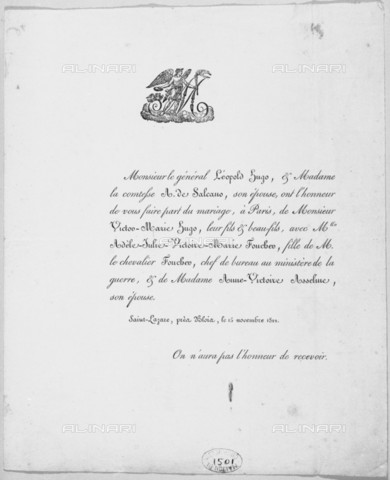 ALINARI
ALINARI
Monsieur le général Léopold Hugo, & Madame
la comtesse A. de Salcano, son épouse, ont l'honneur
de vous faire part du mariage, à Paris, de Monsieur
Victor-Marie Hugo, leur fils & beau-fils, avec Mlle
Adèle-Julie-Victoire-Marie Foucher, fille de M.
le chevalier Foucher, chef de bureau au ministère de la
guerre, & de Madame Anne-Victoire Asseline,
son épouse.
Saint-Lazare, près Blois, le 15 novembre 1822.
On n'aura pas l'honneur de recevoir.
ALINARI
ALINARI
1501